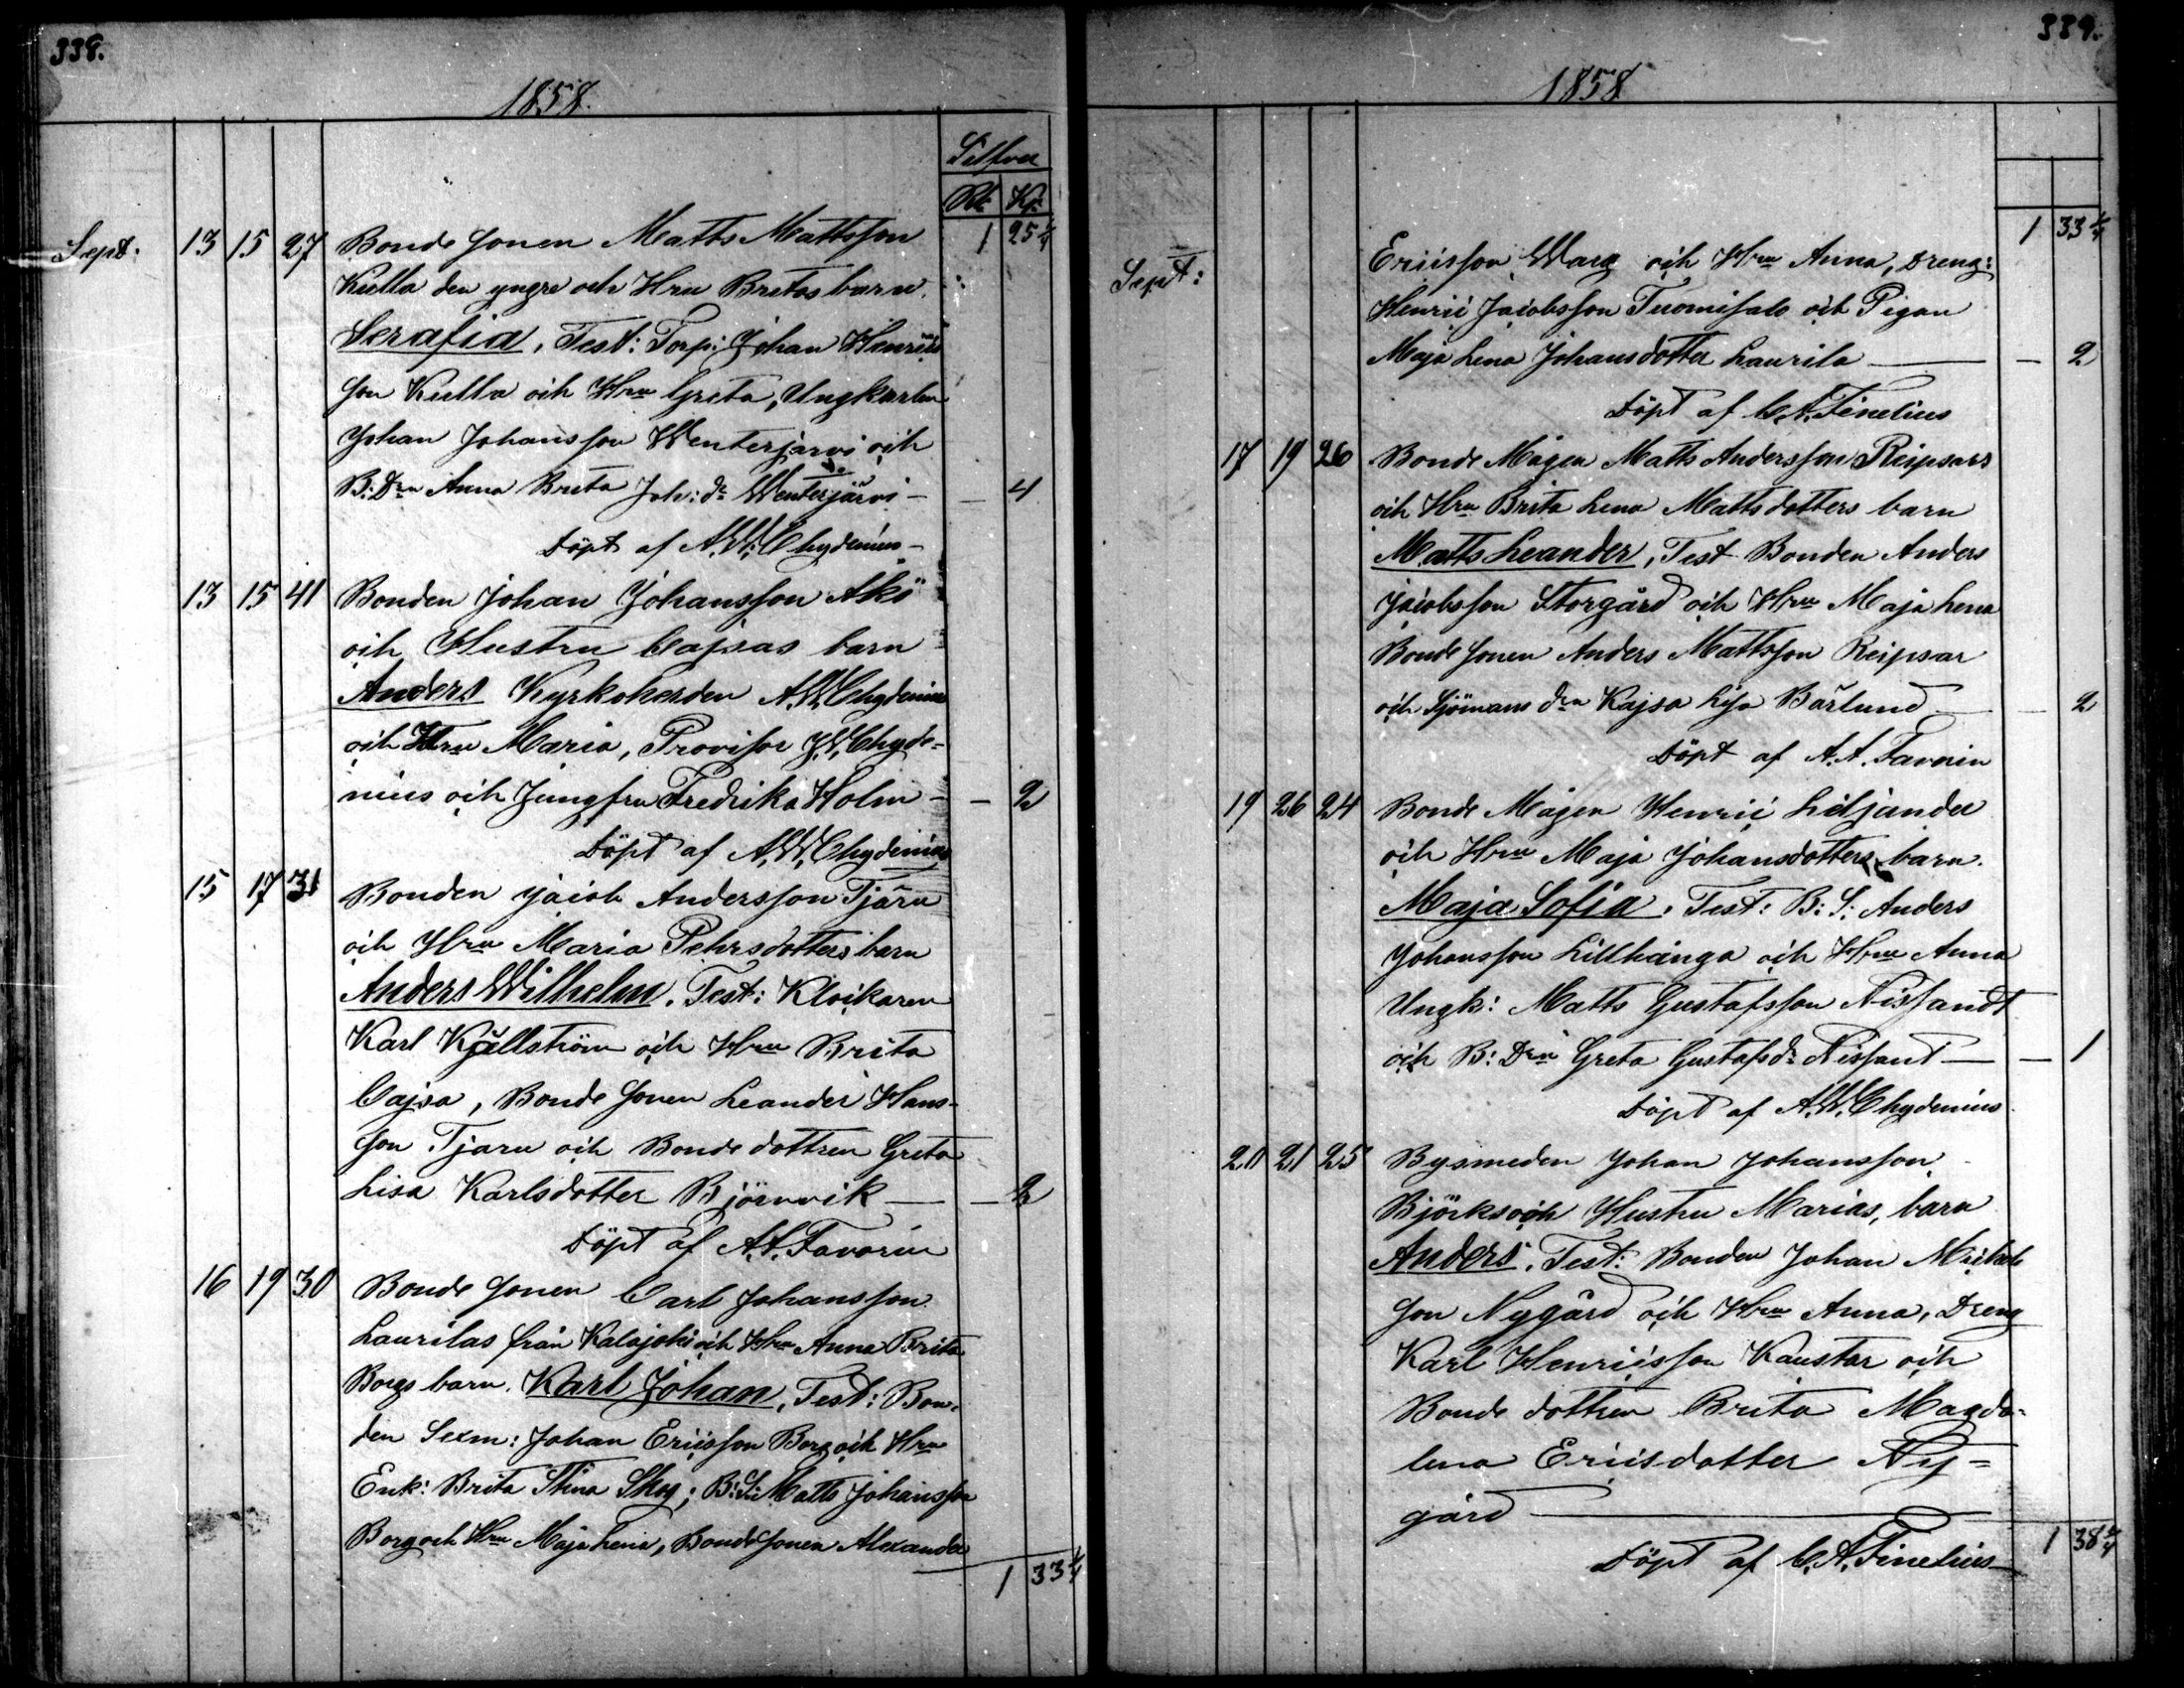 338.
1858.
Silfver
Rb: Kp:
Sept. 13 15 27 Bonde Sonen Matts Mattsson 1 25 1/4
Kulla den yngre och Hru Britas barn.
Serafia, Test: Torp: Johan Henrics
son Kulla och Hru Greta, Ungkarlen
Johan Johansson Wenterjärvi och
B: Drn Anna Brita Joh: dr Wenterjärvi — — 4
Döpt af A.W. Chydenius —
13 15 41 Bonden Johan Johansson Akö
och Hustru Cajsas barn
Anders Kyrkoherden A.W. Chydenius
och Hru Maria, Provisor J.W. Chyde=
nius och Jungfru Fredrika Holm — — 2
Döpt af A.W. Chydenius
15 17 31 Bonden Jacob Andersson Tjäru
och Hru Maria Pehrsdotters barn
Anders Wilhelm. Test: Klockaren
Karl Kjällström och Hru Brita
Cajsa, Bonde Sonen Leander Hans-
son Tjäru och Bonde dottren Greta
Lisa Karlsdotter Björnvik — — 2
Döpt af A.A. Favorin
16 19 30 Bonde Sonen Carl Johansson
Laurilas från Kalajoki och Hru Anna Brita
Borgs barn. Karl Johan, Test: Bon-
den Sexm: Johan Ericsson Borg och Hru
Enk: Brita Stina Skog; B: S: Matts Johansson
Borg och Hru Maja Lena, Bonde Sonen Alexander
1 33 1/4
339.
1858
1 33 1/4
Sept: Ericsson Warg och Hru Anna, Dreng:
Henric Jacobsson Tuomisalo och Pigan
Maja Lena Johansdotter Laurila — — 2
Döpt af C.A. Finelius
17 19 26 Bonde Mågen Matts Andersson Reipsars
och Hru Brita Lena Mattsdotters barn
Matts Leander, Test Bonden Anders
Jacobsson Storgård och Hru Maja Lena
Bonde Sonen Anders Mattsson Reipsar
och Sjömans drn Kajsa Lisa Bärlund — — 2
Döpt af A.A. Favorin
19 26 24 Bonde Mågen Henric Liljander
och Hru Maja Johansdotters barn.
Maja Sofia. Test: B: S: Anders
Johansson Lillhånga och Hru Anna
Ungk: Matts Gustafsson Nissandt
och B: Drn Greta Gustafsdr Nissant — — 1
Döpt af A.W. Chydenius.
20 21 25 Bysmeden Johan Johansson
Björks och Hustru Marias, barn
Anders, Test: Bonden Johan Michels
son Nygård och Hru Anna, Dreng
Karl Henricsson Kaustar och
Bonde dottren Brita Magda-
lena Ericsdotter Ny=
gård —
1 38 1/4
Döpt af C.A. Finelius —